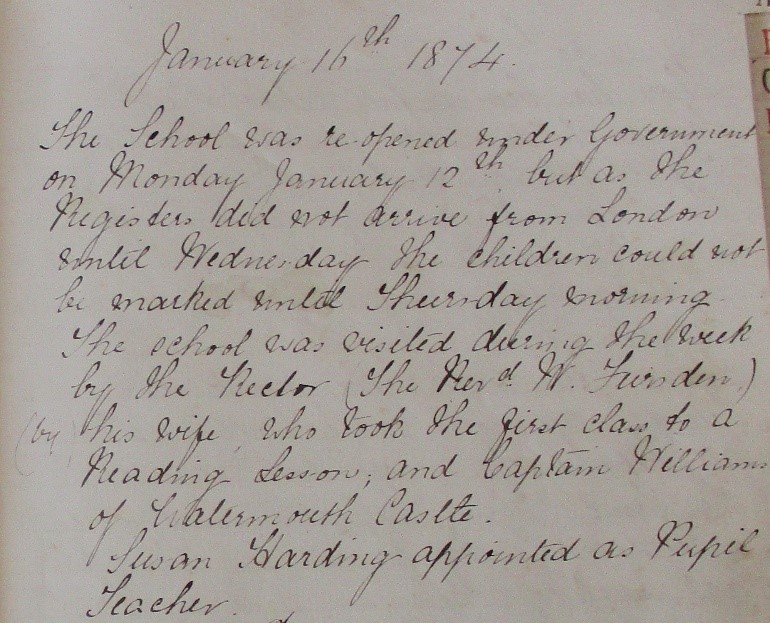 January 16th 1874.
The School was re-opened under Government
on Monday January 12th, but as the
Registers did not arrive from London
until Wednesday the children could not
be marked until Thursday morning.
The school was visited during the week
by the Rector (The Revd W. Fursdon)
(by his wife, who took the first class to a
Reading Lesson; and Captain Williams
of Watermouth Castle.
Susan Harding appointed as Pupil
Teacher.